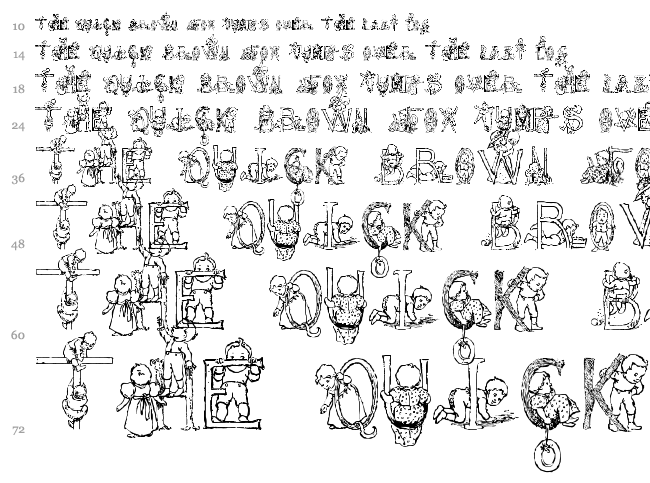 10 THE QUICK BROWN FOX JUMPS OVER THE LAZY DOG
14 THE QUICK BROWN FOX JUMPS OVER THE LAZY DOG
18 THE QUICK BROWN FOX JUMPS OVER THE LAZ
24 THE QUICK BROWN FOX JUMPS OVE
36 THE QUICK BROWN FO
48 THE QUICK BROW
60 THE QUICK B
72 THE QUICK